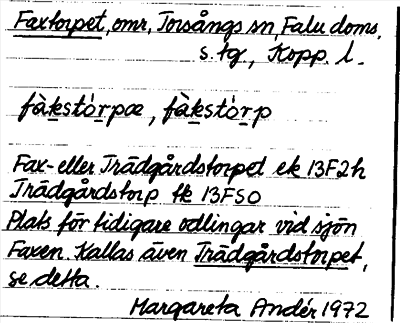 Faxtorpet, omr, Torsångs sn, Falu doms.
s. tg., Kopp. l.
fàkstó̱rpæ, fàkstò̱rp
Fax- eller Trädgårdstorpet ek 13F2h
Trädgårdstorp tk 13FSO
Plats för tidigare odlingar vid sjön
Faxen. Kallas även Trädgårdstorpet,
se detta.
Margareta Andér 1972